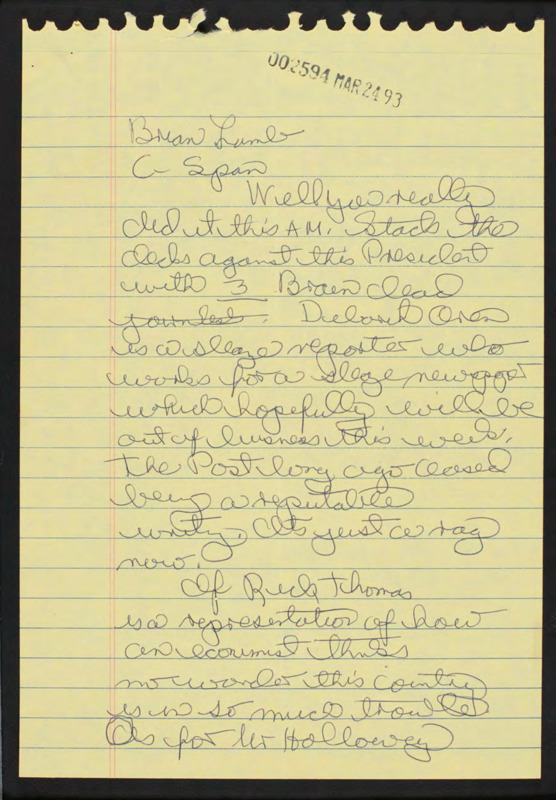 002594 MAR 24 93
Brian Lamb
C-Span
Well you really
did it this AM. Stack the
decks against this President
with 3 Brain dead
Deborah Oren
is a sleaze reporter who
works for a sleze newspaper
which hopefully will be
out of business this week.
The Post long ago ceased
being a reputable
Its just a rag
now.
If Rich Thomas
is a representation of how
an economist thinks
no wonder this country
is in so much trouble
As for Mr Holloway